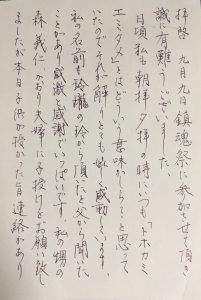 拝啓 九月九日鎮魂祭に参加させて頂き
誠に有難うございました。
日頃私も朝拝夕拝の時にいつも、トホカミ、
エミタメとはどういう意味かしら?と思って
いたのですが解りとても嬉しく感動しています。
私の名前も玲瓏の玲から頂いたと父から聞いた
ことがあり感激と感謝でいっぱいです。私の甥の
森 義仁 かおり夫婦に子授けをお願い致し
ましたが本日子供が授かった旨連絡があり